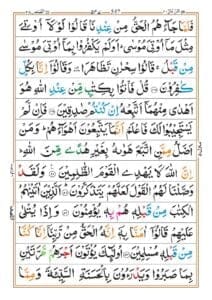 فَلَمَّا جَآءَهُمُ الْحَقُّ مِنْ عِنْدِنَا قَالُوْا لَوْلَاۤ اُوْتِيَ
مِثْلَ مَاۤ اُوْتِيَ مُوْسٰى اَوَلَمْ يَكْفُرُوْا بِمَاۤ اُوْتِيَ مُوْسٰى
مِنْ قَبْلُ قَالُوْا سِحْرٰنِ تَظٰهَرَا وَقَالُوْۤا اِنَّا بِكُلٍّ
كٰفِرُوْنَ قُلْ فَاْتُوْا بِكِتٰبٍ مِّنْ عِنْدِ اللّٰهِ هُوَ
اَهْدٰى مِنْهُمَاۤ اَتَّبِعْهُ اِنْ كُنْتُمْ صٰدِقِيْنَ فَاِنْ لَّمْ
يَسْتَجِيْبُوْا لَكَ فَاعْلَمْ اَنَّمَا يَتَّبِعُوْنَ اَهْوَآءَهُمْ وَمَنْ
اَضَلُّ مِمَّنِ اتَّبَعَ هَوٰىهُ بِغَيْرِ هُدًى مِّنَ اللّٰهِ
اِنَّ اللّٰهَ لَا يَهْدِي الْقَوْمَ الظّٰلِمِيْنَ وَلَقَدْ
وَصَّلْنَا لَهُمُ الْقَوْلَ لَعَلَّهُمْ يَتَذَكَّرُوْنَ اَلَّذِيْنَ اٰتَيْنٰهُمُ
الْكِتٰبَ مِنْ قَبْلِهٖ هُمْ بِهٖ يُؤْمِنُوْنَ وَاِذَا يُتْلٰى
عَلَيْهِمْ قَالُوْۤا اٰمَنَّا بِهٖۤ اِنَّهُ الْحَقُّ مِنْ رَّبِّنَاۤ اِنَّا كُنَّا
مِنْ قَبْلِهٖ مُسْلِمِيْنَ اُولٰٓئِكَ يُؤْتَوْنَ اَجْرَهُمْ مَّرَّتَيْنِ
بِمَا صَبَرُوْا وَيَدْرَءُوْنَ بِالْحَسَنَةِ السَّيِّئَةَ وَمِمَّا